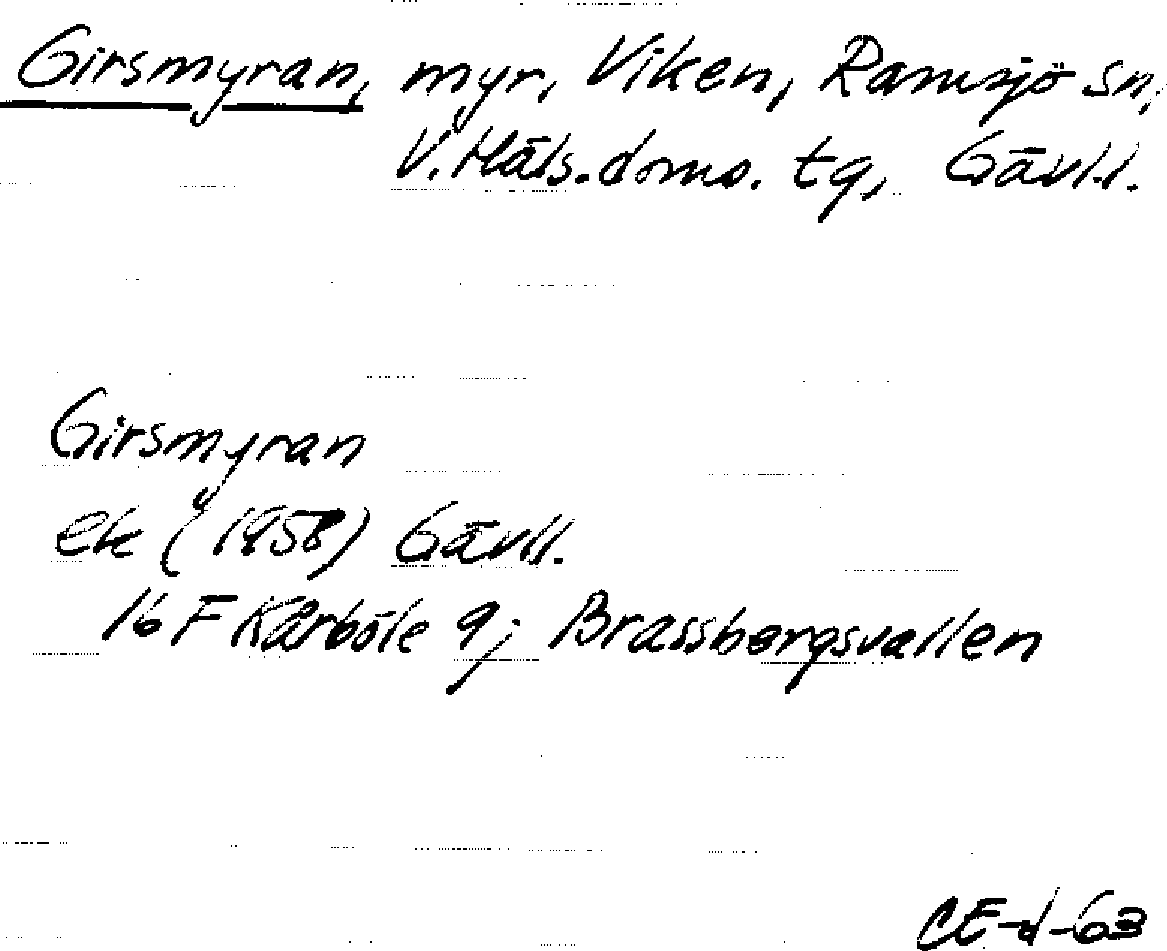 Girsmyran, myr, Viken, Ramsjö sn,
V. Häls. doms. tg, Gävl.l.
Girsmyran
ek (1958) Gävl.l.
16 F Kårböle 9j Brassbergsvallen
CE-d-63